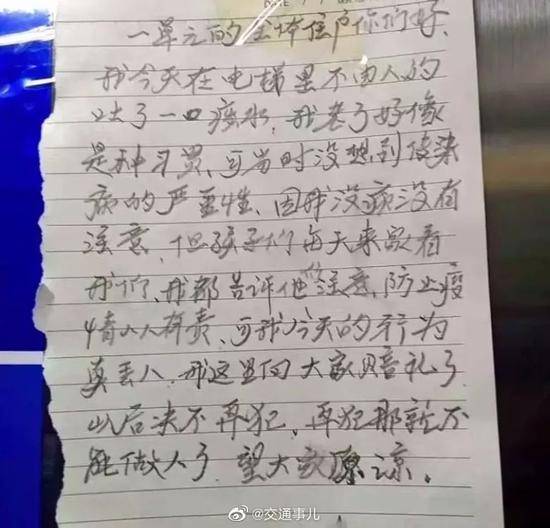 一单元的全体住户你们好、
我今天在电梯里不由人的
吐了一口痰水，我老了好像
是种习惯、可当时没想到传染
病的严重性、因我没病没有
注意，但孩子们每天来家看
我们、我都告诉他们注意、防止疫
情人人有责、可我今天的行为
真丢人、我这里向大家赔礼了
以后决不再犯、再犯那就不
能做人了，望大家原谅。
@交通事儿